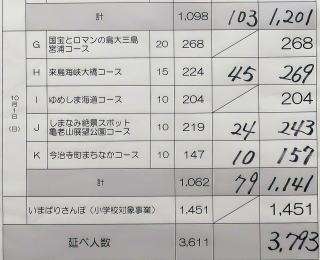 計 1,098 103 1,201
10月1日(日)
G 国宝とロマンの島大三島宮浦コース 20 268 268
H 来島海峡大橋コース 15 224 45 269
I ゆめしま海道コース 10 204 204
J しまなみ絶景スポット亀老山展望公園コース 10 219 24 243
K 今治寺町まちなかコース 10 147 10 157
計 1,062 79 1,141
いまばりさんぽ(小学校対象事業) 1,451 1,451
延べ人数 3,611 3,793